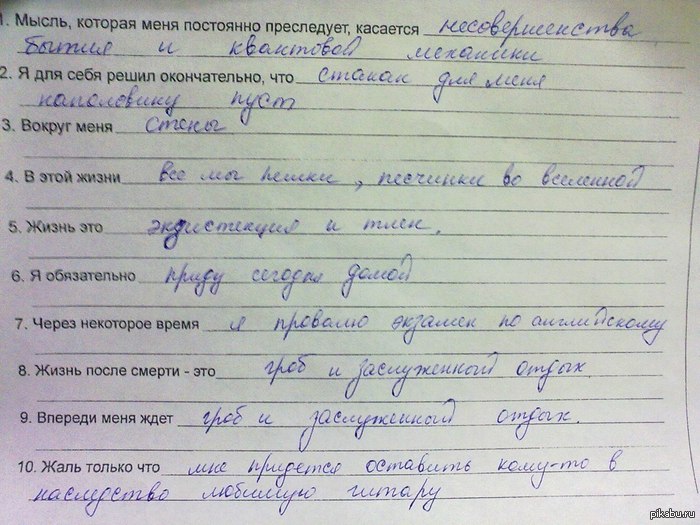 1. Мысль, которая меня постоянно преследует, касается несовершенства
бытия и квантовой механики
2. Я для себя решил окончательно, что стакан для меня
наполовину пуст
3. Вокруг меня стены
4. В этой жизни все мы пешки, песчинки во вселенной
5. Жизнь это экзистекция и тлен.
6. Я обязательно приду сегодня домой
7. Через некоторое время я провалю экзамен по английскому
8. Жизнь после смерти - это гроб и заслуженный отдых.
9. Впереди меня ждет гроб и заслуженный отдых.
10. Жаль только что мне придется оставить кому-то в
наследство любимую гитару
pikabu.ru